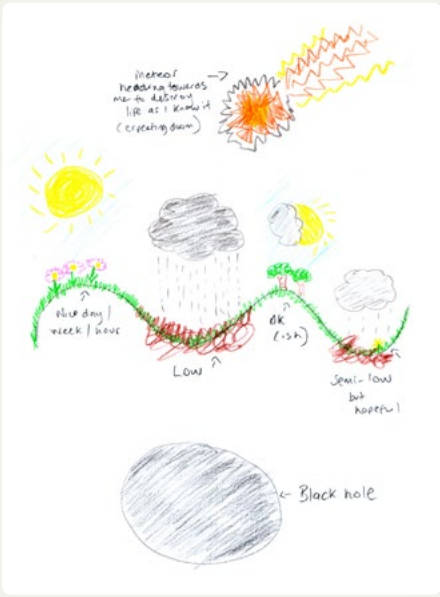 meteor
heading towards
me to destroy
life as I know it
(expecting doom)
Nice day /
week / hour
Low
OK
(ish)
Semi-low
but
hopeful
Black hole